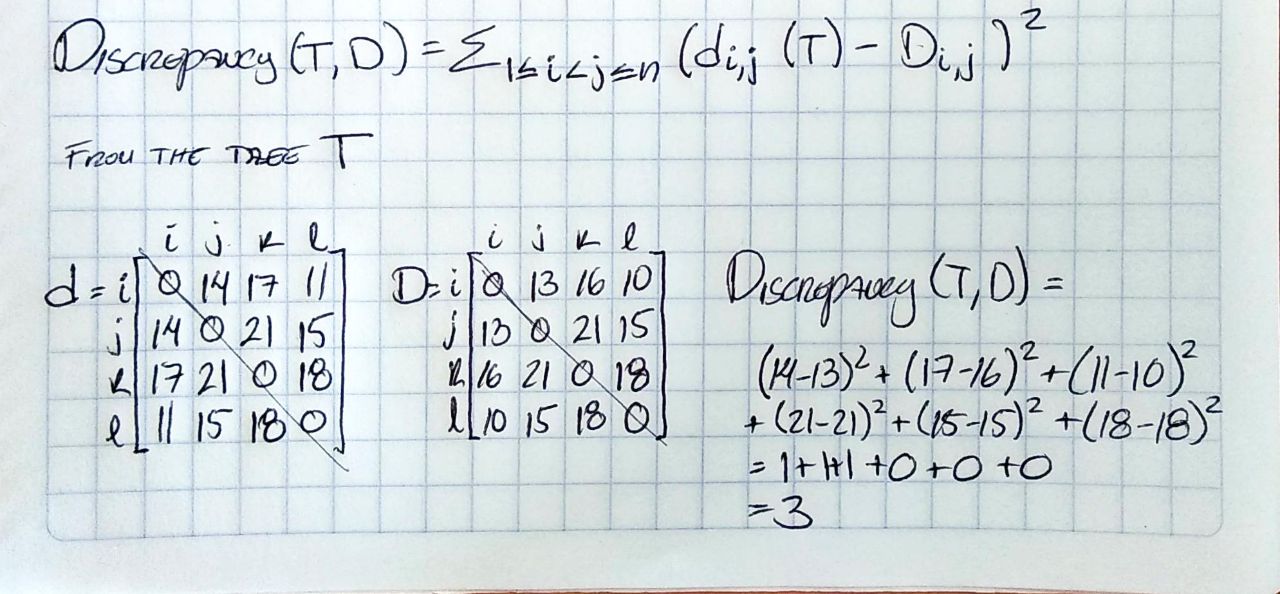 Discrepancy (T, D) = Σ 1≤i<j≤n (di,j (T) - Di,j)²
FROM THE TREE T
i j k l
d = i [ 0 14 17 11 ]
j [ 14 0 21 15 ]
k [ 17 21 0 18 ]
l [ 11 15 18 0 ]
i j k l
D = i [ 0 13 16 10 ]
j [ 13 0 21 15 ]
k [ 16 21 0 18 ]
l [ 10 15 18 0 ]
Discrepancy (T, D) =
(14-13)² + (17-16)² + (11-10)²
+ (21-21)² + (15-15)² + (18-18)²
= 1+1+1 +0 +0 +0
= 3